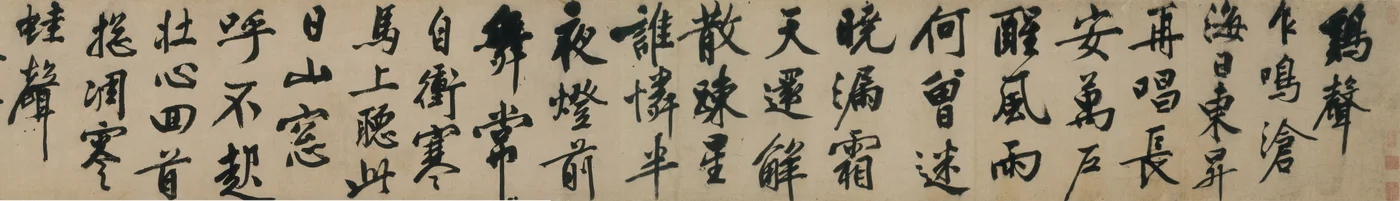 鷄聲
乍鳴滄
海日東昇
再唱長
安萬戶
醒風雨
何曾迷
曉漏霜
天還解
散疎星
誰憐半
夜燈前
舞常
自衝寒
馬上聽此
日山窓
呼不起
壯心回首
摠凋零
蛙聲